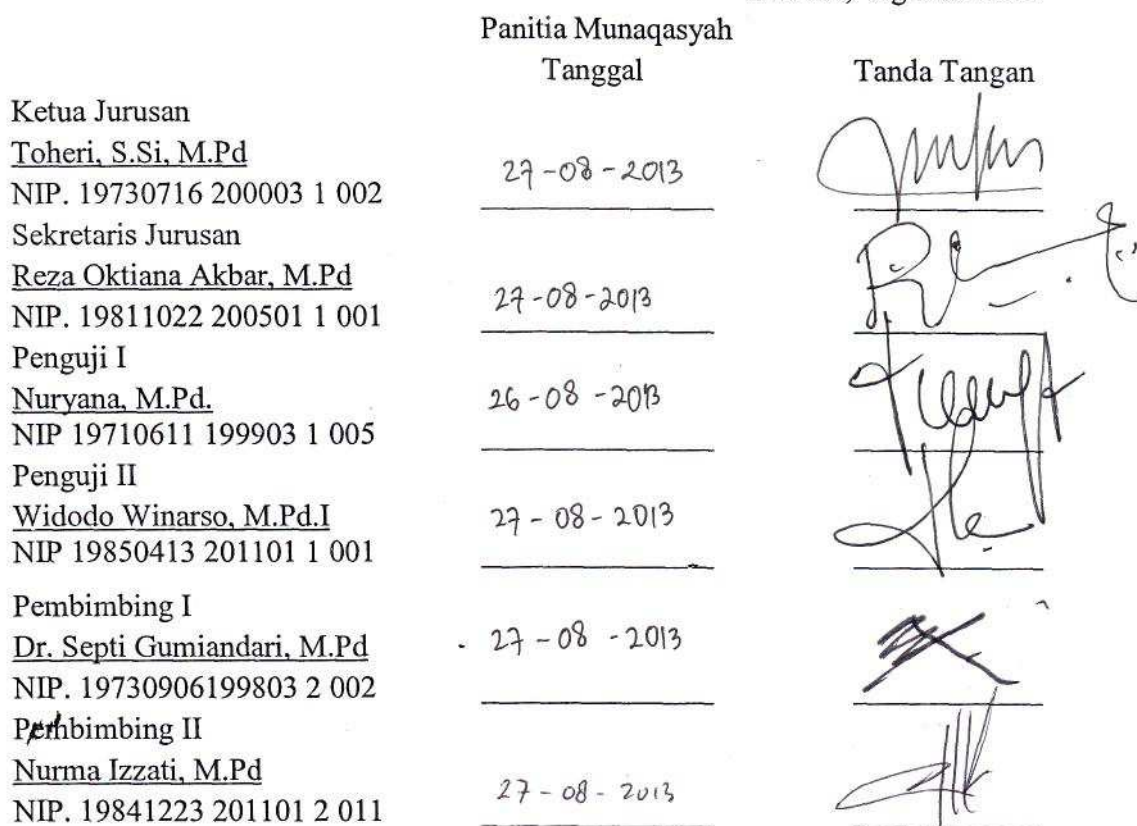 Panitia Munaqasyah
Tanggal Tanda Tangan
Ketua Jurusan
Toheri, S.Si, M.Pd
NIP. 19730716 200003 1 002
27-08-2013
Sekretaris Jurusan
Reza Oktiana Akbar, M.Pd
NIP. 19811022 200501 1 001
27-08-2013
Penguji I
Nuryana, M.Pd.
NIP 19710611 199903 1 005
26-08-2013
Penguji II
Widodo Winarso, M.Pd.I
NIP 19850413 201101 1 001
27-08-2013
Pembimbing I
Dr. Septi Gumiandari, M.Pd
NIP. 19730906199803 2 002
27-08-2013
Pembimbing II
Nurma Izzati, M.Pd
NIP. 19841223 201101 2 011
27-08-2013